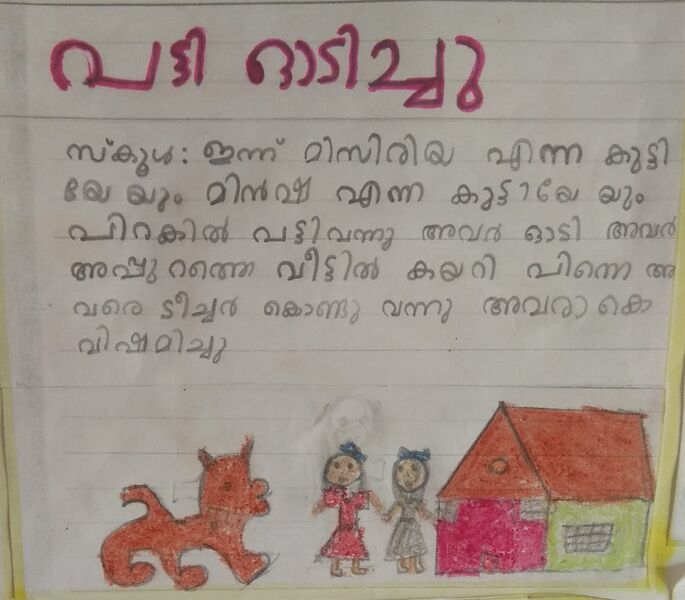 പട്ടി ഓടിച്ചു
സ്കൂൾ: ഇന്ന് മിസിരിയ എന്ന കുട്ടി
യേ യും മിൻഷ എന്ന കുട്ടിയേ യും
പിറകിൽ പട്ടിവന്നു അവർ ഓടി അവർ
അപ്പുറത്തെ വീട്ടിൽ കയറി പിന്നെ അ
വരെ ടീച്ചർ കൊണ്ടു വന്നു അവരാകെ
വിഷമിച്ചു